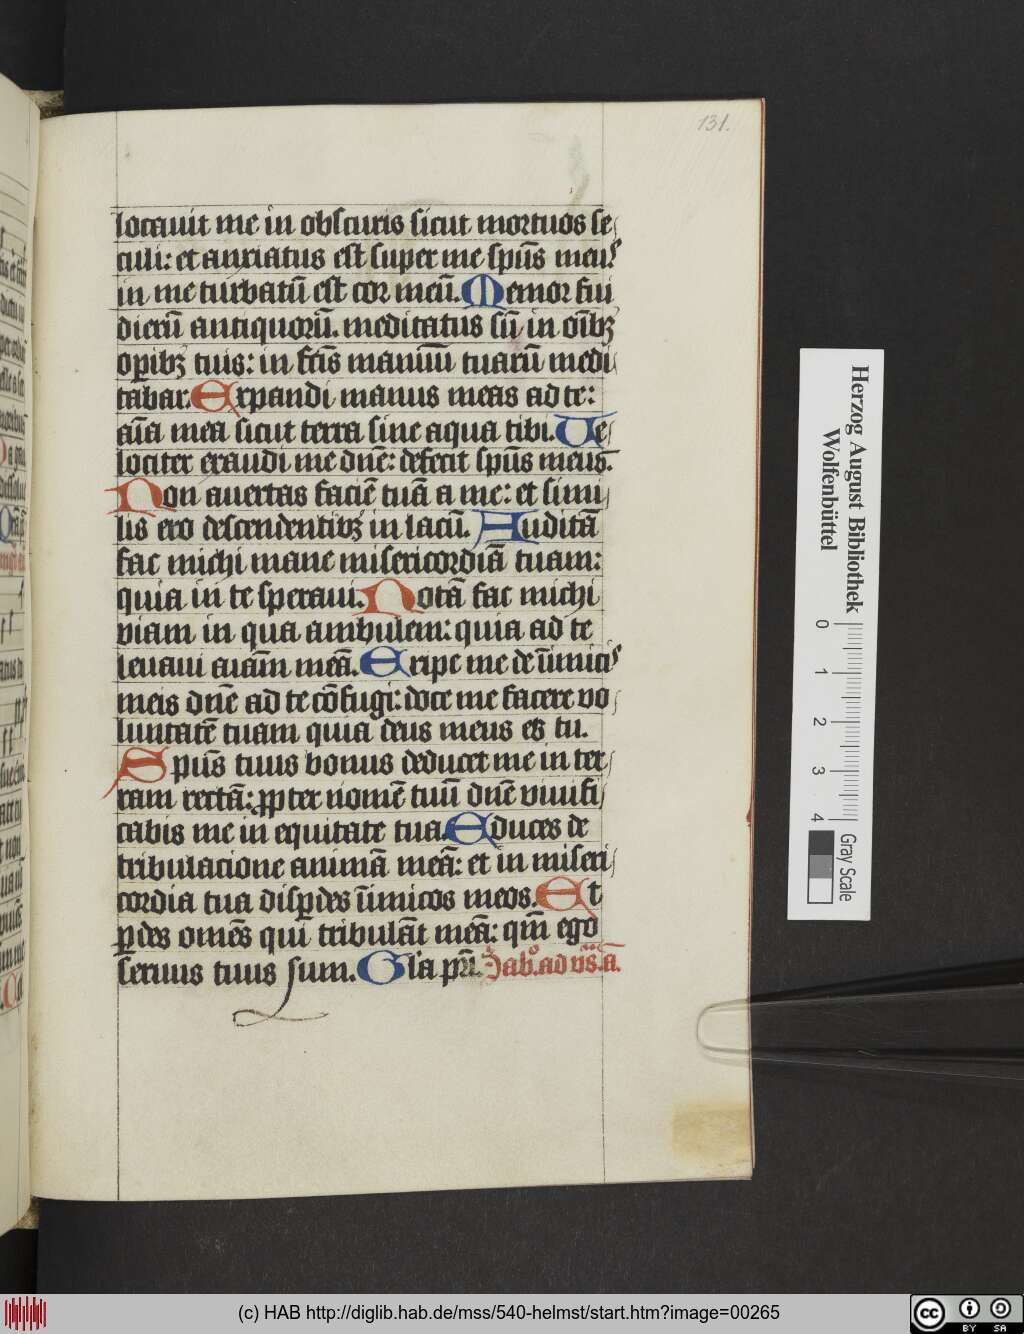 131.
locauit me in obscuris sicut mortuos se/
culi: et anxiatus est super me spūs meus
in me turbatū est cor meū. Memor fui
dierū antiquorū. meditatus sū in oībꝫ
oꝑibꝫ tuis: in fcīs manuum tuarū medi/
tabar. Expandi manus meas ad te:
aīa mea sicut terra sine aqua tibi. Ue/
lociter exaudi me dnē: defecit spūs meus.
Non auertas faciē tuā a me: et simi/
lis ero descendentibꝫ in lacū. Auditā
fac michi mane misericordiā tuam:
quia in te speraui. Notā fac michi
viam in qua ambulem: quia ad te
leuaui aīam meā. Eripe me de inimicis
meis dnē ad te cōfugi: doce me facere vo/
luntatē tuam quia deus meus es tu.
Spūs tuus bonus deducet me in ter/
ram rectā: ꝓpter nomē tuū dnē viuifi/
cabis me in equitate tua. Educes de
tribulacione animā meā: et in miseri/
cordia tua disꝑdes īimicos meos. Et
ꝑdes omēs qui tribulāt meā: qm̄ ego
seruus tuus sum. Glīa pr̄i.
Herzog August Bibliothek
Wolfenbüttel
0 1 2 3 4
Gray Scale
(c) HAB http://diglib.hab.de/mss/540-helmst/start.htm?image=00265
cc BY SA